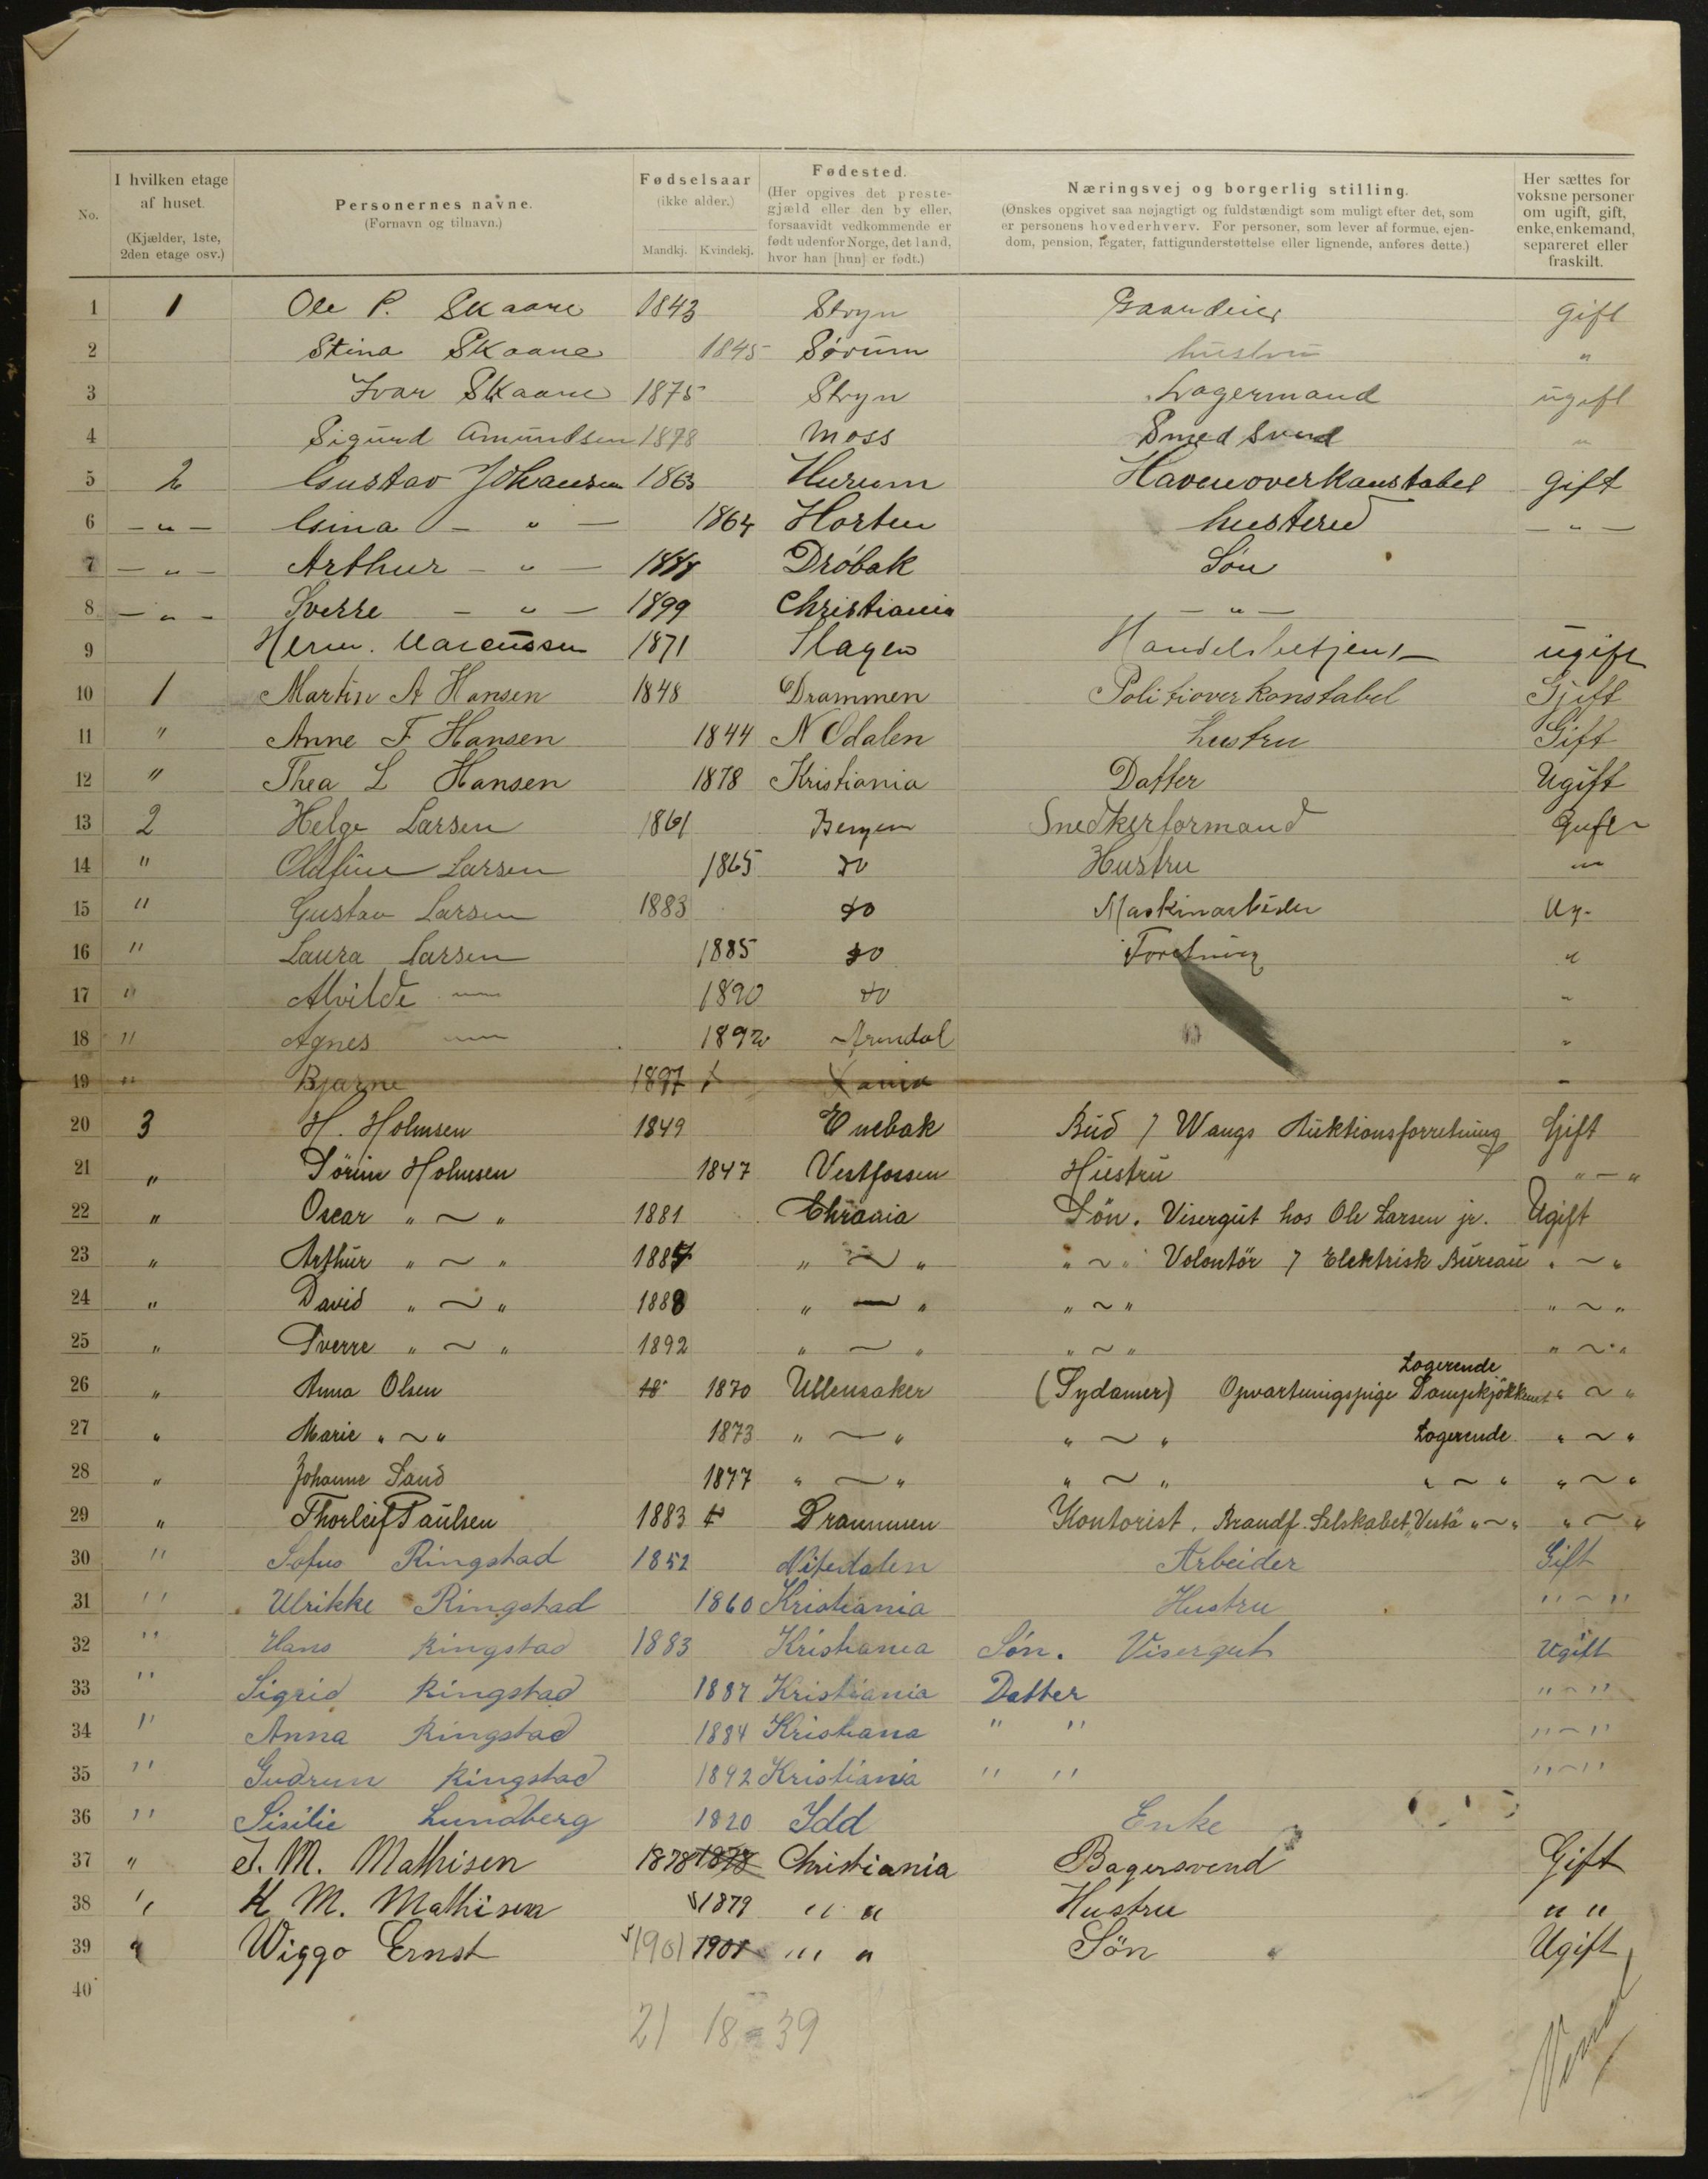 No.
I hvilken etage af huset. (Kjælder, 1ste, 2den etage osv.)
Personernes navne. (Fornavn og tilnavn.)
Fødselsaar (ikke alder.) Mandkj. Kvindekj.
Fødested. (Her opgives det prestegjæld eller den by eller, forsaavidt vedkommende er født udenfor Norge, det land, hvor han [hun] er født.)
Næringsvej og borgerlig stilling. (Ønskes opgivet saa nøjagtigt og fuldstændigt som muligt efter det, som er personens hovederhverv. For personer, som lever af formue, ejendom, pension, legater, fattigunderstøttelse eller lignende, anføres dette.)
Her sættes for voksne personer om ugift, gift, enke, enkemand, separeret eller fraskilt.
1 1 Ole P. Skaare 1843 Stryn Gaardeier gift
2 Stina Skaare 1845 Sørum hustru "
3 Ivar Skaare 1875 Stryn Lagermand ugift
4 Sigurd Amundsen 1878 Moss Smedsvend "
5 2 Gustav Johansen 1863 Hurum Havneoverkonstabel gift
6 - " - Gina - " - 1864 Horten hustru - " -
7 - " - Arthur - " - 1888 Drøbak Søn
8 - " - Sverre - " - 1899 Christiania - " -
9 Herm. Marcussen 1871 Slagen Handelsbetjent ugift
10 1 Martin A Hansen 1848 Drammen Politioverkonstabel Gift
11 " Anne F Hansen 1844 N Odalen hustru Gift
12 " Thea L Hansen 1878 Kristiania Datter Ugift
13 2 Helge Larsen 1861 Bergen Snedkerformand Gift
14 " Olufine Larsen 1865 do Hustru "
15 " Gustav Larsen 1883 do Maskinarbeider Ug.
16 " Laura Larsen 1885 do Foretning "
17 " Alvilde — 1890 do "
18 " Agnes — 1892 Arendal "
19 " Bjarne 1897 X ania "
20 3 H. Holmsen 1849 Enebak Bud / Wangs Auktionsforretning Gift
21 " Sörine Holmsen 1847 Vestfossen Hustru " - "
22 " Oscar " ~ " 1881 Chrania Sön. Visergut hos Ole Larsen jr. Ugift
23 " Arthur " ~ " 1887 " ~ " " ~ " Volontör / Elektrisk Bureau " ~ "
24 " David " ~ " 1888 " ~ " " ~ " " ~ "
25 " Sverre " ~ " 1892 " ~ " " ~ " " ~ "
26 " Anna Olsen 18 1870 Ullensaker (Sydamer) Opvartningspige Dampkjökkenet Logerende " ~ "
27 " Marie " ~ " 1873 " ~ " " ~ " Logerende " ~ "
28 " Johanne Sand 1877 " ~ " " ~ " " ~ " " ~ "
29 " Thorleif Paulsen 1883 Drammen Kontorist. Brandf. Selskabet "Vesta" " ~ " " ~ "
30 " Sofus Ringstad 1852 Nitedalen Arbeider Gift
31 " Ulrikke Ringstad 1860 Kristiania Hustru " ~ "
32 " Hans Ringstad 1883 Kristiania Søn. Visergut Ugift
33 " Sigrid Ringstad 1887 Kristiania Datter " ~ "
34 " Anna Ringstad 1884 Kristiana " " " ~ "
35 " Gudrun Ringstad 1892 Kristiania " " " ~ "
36 " Sisilie Lundberg 1820 Idd Enke
37 " J. M. Mathisen 1878 1878 Christiania Bagersvend Gift
38 " K M. Mathisen 1879 " " Hustru " "
39 " Wiggo Ernst 1901 1901 " " Sön Ugift
40
21 18 = 39
Vend